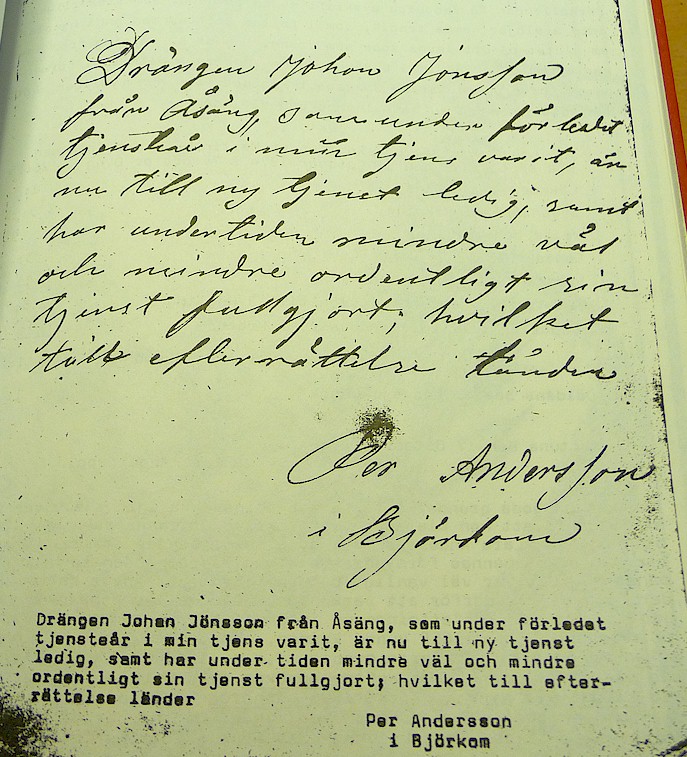 Drängen Johan Jönsson
från Åsäng, som under förledet
tjensteår i min tjens varit, är
nu till ny tjenst ledig, samt
har undertiden mindre väl
och mindre ordentligt sin
tjenst fullgjort; hvilket
till efterrättelse länder
Per Andersson
i Björkom
Drängen Johan Jönsson från Åsäng, som under förledet
tjensteår i min tjens varit, är nu till ny tjenst
ledig, samt har under tiden mindre väl och mindre
ordentligt sin tjenst fullgjort; hvilket till efter-
rättelse länder
Per Andersson
i Björkom